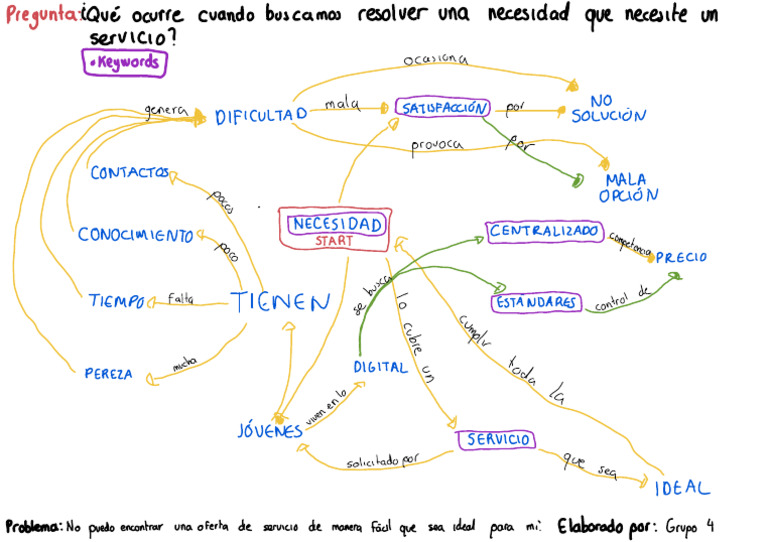 Pregunta: ¿Qué ocurre cuando buscamos resolver una necesidad que necesite un
servicio?
• Keywords
ocasiona
genera
DIFICULTAD
mala
SATISFACCIÓN
por
NO
SOLUCIÓN
provoca
por
CONTACTOS
MALA
OPCIÓN
pocos
NECESIDAD
START
CENTRALIZADO
competencia
PRECIO
CONOCIMIENTO
poco
se busca
TIEMPO
falta
TIENEN
lo cubre un
ESTÁNDARES
control de
cumplir toda la
PEREZA
mucha
DIGITAL
JÓVENES
viven en lo
SERVICIO
solicitado por
que sea
IDEAL
Problema: No puedo encontrar una oferta de servicio de manera fácil que sea ideal para mi. Elaborado por: Grupo 4